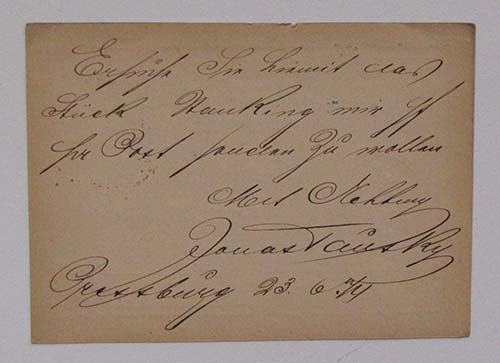 Ersuche Sie hiemit das
Stück Nanking mir pr
Post senden zu wollen
Mit Achtung
Jonas Tausky
Pressburg 23. 6.